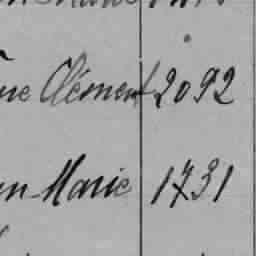 Clément 2092
Marie 1731